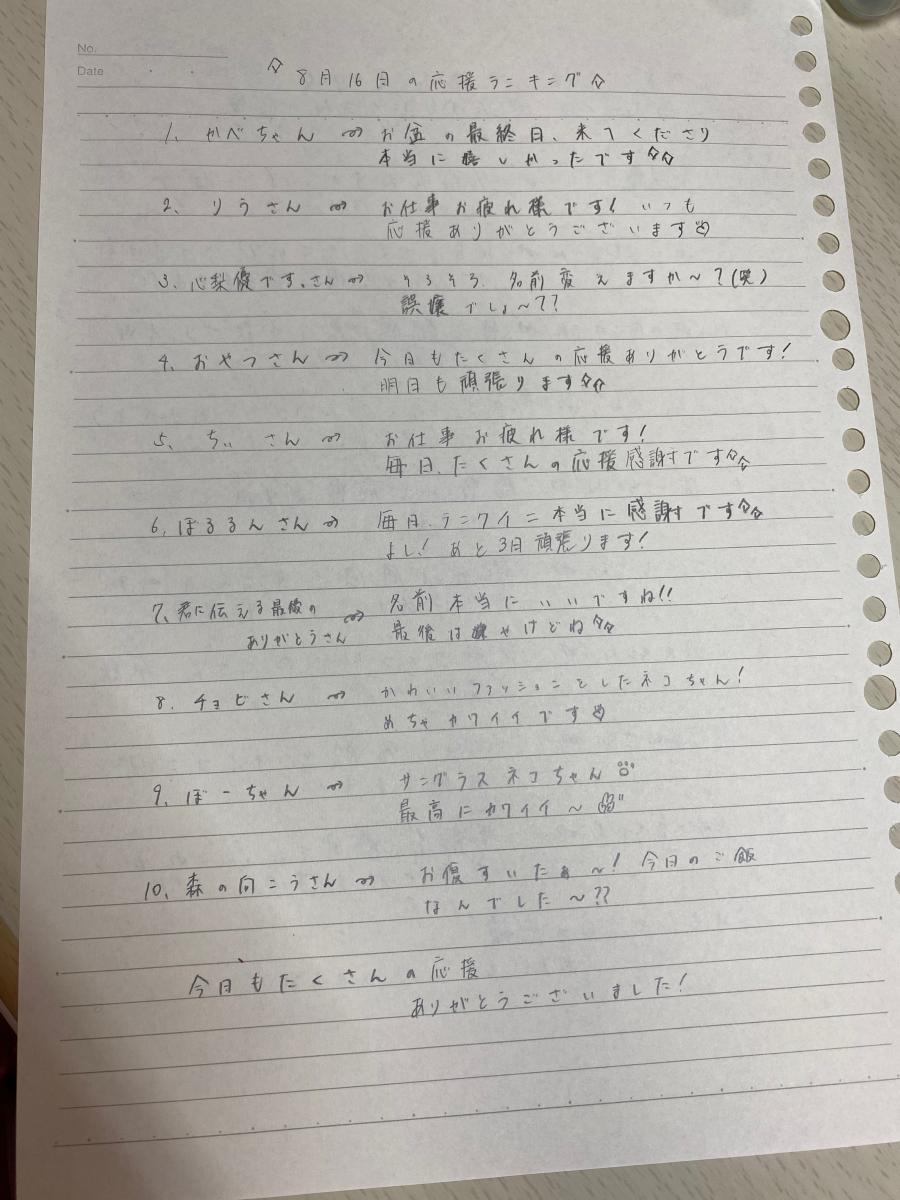 No.
Date
☆8月16日の応援ランキング☆
1. かべちゃん ⇝ お盆の最終日、来てくださり
本当に嬉しかったです☆☆
2. りうさん ⇝ お仕事お疲れ様です! いつも
応援ありがとうございます
3. 心梨優です。さん ⇝ そろそろ、名前変えますか〜?(笑)
誤嬢でしょ〜??
4. おやつさん ⇝ 今日もたくさんの応援ありがとうです!
明日も頑張ります☆☆
5. ちぃさん ⇝ お仕事お疲れ様です!
毎日、たくさんの応援感謝です☆☆
6. ぽるるんさん ⇝ 毎日、ランクイン本当に感謝です☆☆
よし! あと3日頑張ります!
7. 君に伝える最後の ⇝ 名前本当にいいですね!!
ありがとうさん 最後は嫌やけどね☆☆
8. チョビさん ⇝ かわいいファッションをしたネコちゃん!
めちゃカワイイです
9. ぼーちゃん ⇝ サングラスネコちゃん
最高にカワイイ〜
10. 森の向こうさん ⇝ お腹すいたぁ〜! 今日のご飯
なんでした〜??
今日もたくさんの応援
ありがとうございました!